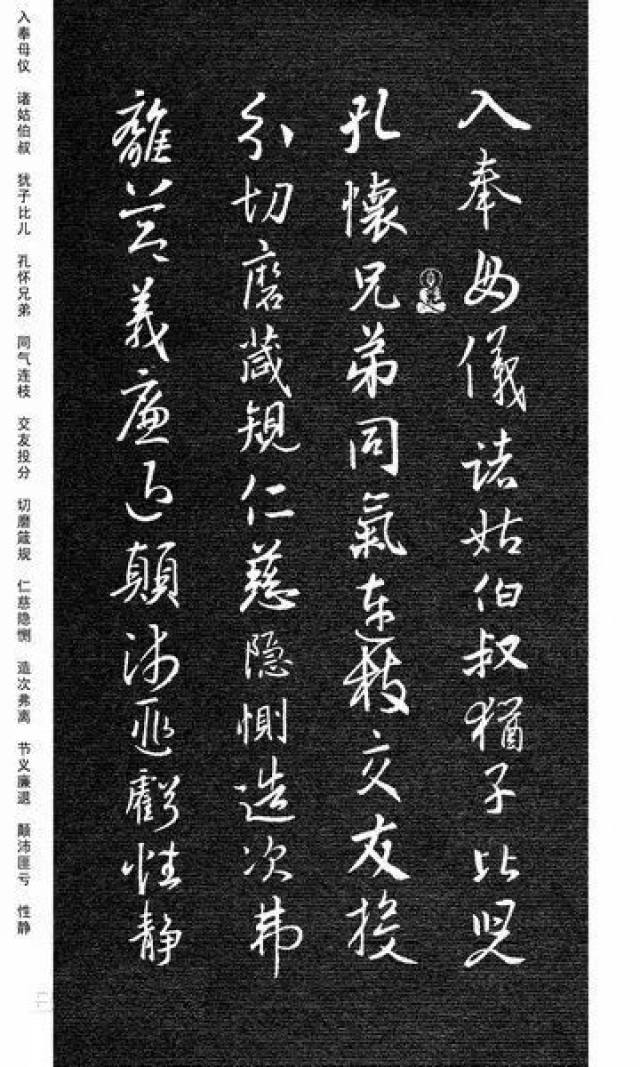 入奉母儀諸姑伯叔猶子比兒
孔懷兄弟同氣連枝交友投
分切磨箴規仁慈隐惻造次弗
離节義廉退顛沛匪虧性静
入奉母仪 诸姑伯叔 犹子比儿 孔怀兄弟 同气连枝 交友投分 切磨箴规 仁慈隐恻 造次弗离 节义廉退 颠沛匪亏 性静